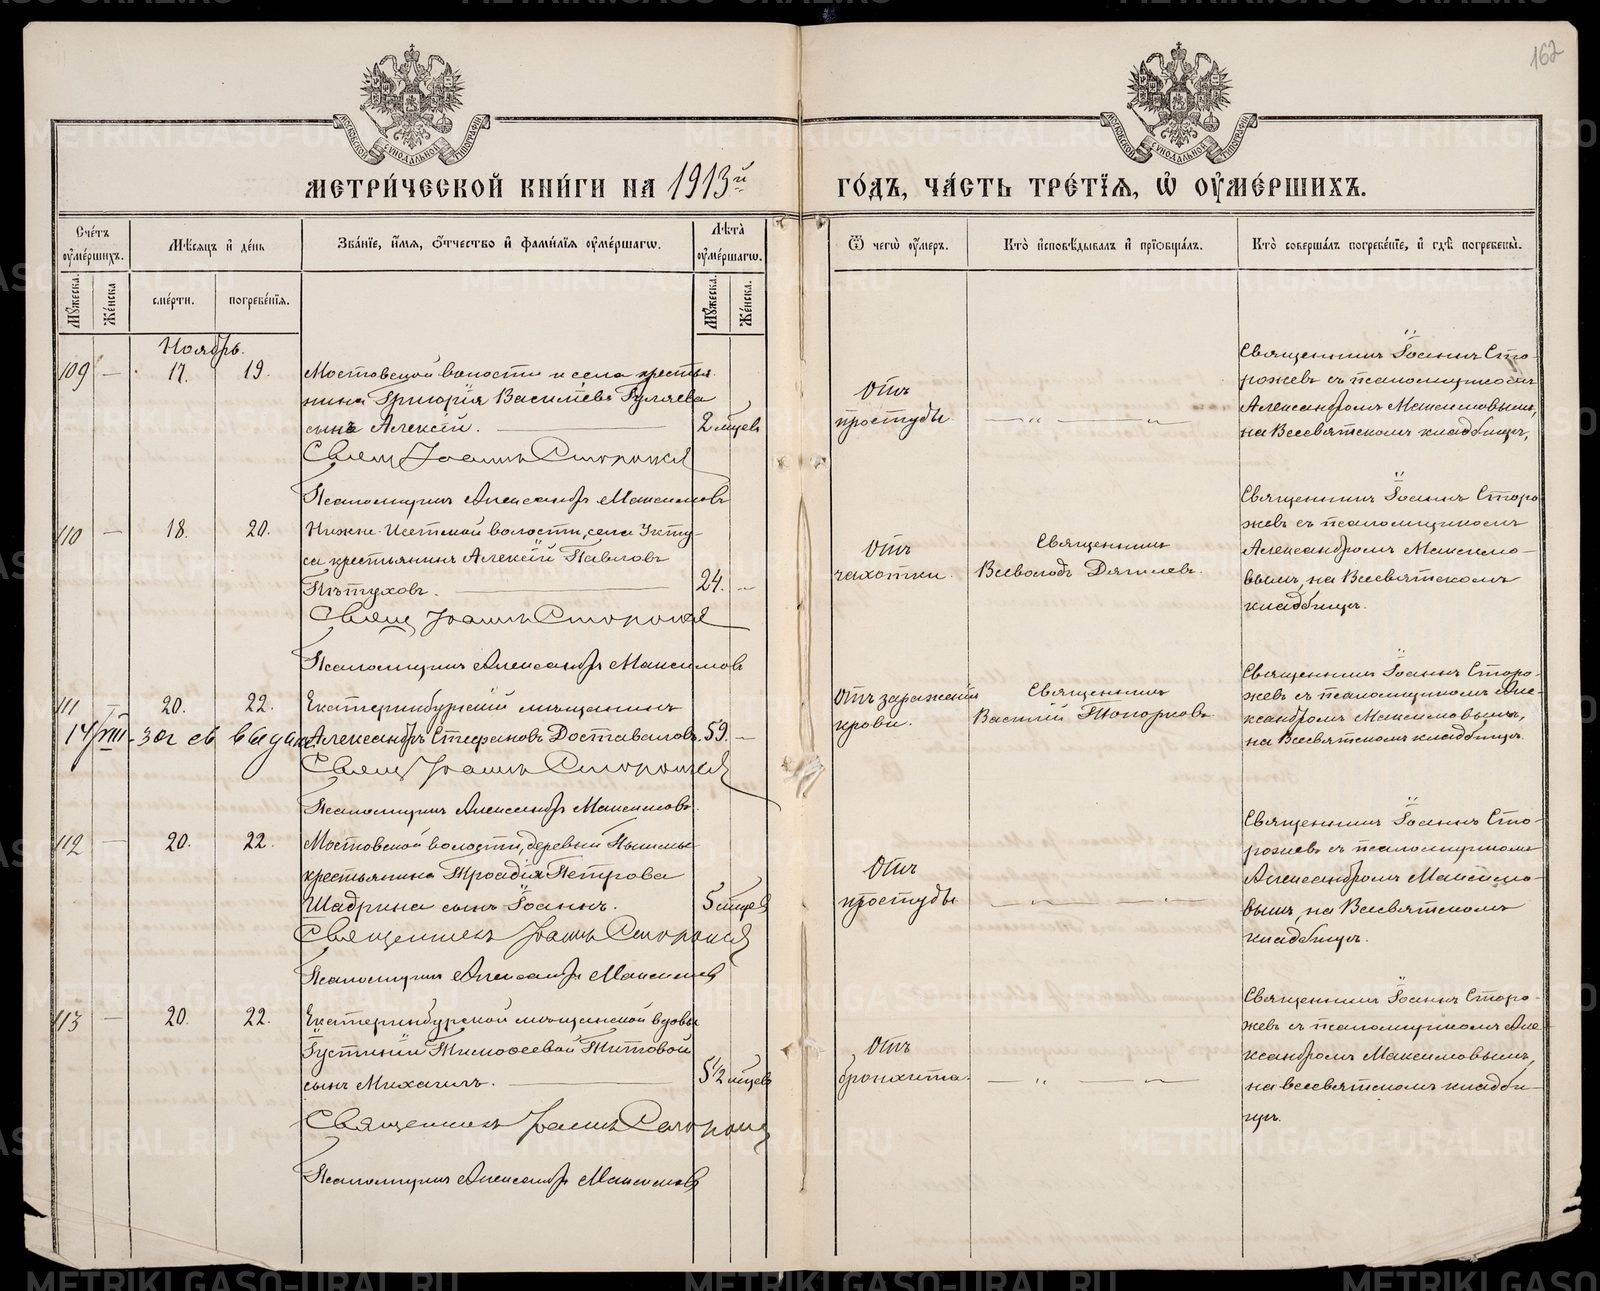 162
МОСКОВСКОЙ СѴНОДАЛЬНОЙ ТИПОГРАФІИ
МОСКОВСКОЙ СѴНОДАЛЬНОЙ ТИПОГРАФІИ
МЕТРИ́ЧЕСКОЙ КНИ́ГИ НА 1913й
ГО́ДЪ, ЧА́СТЬ ТРЕ́ТІѦ, Ѡ҆ ОУ҆МЕ́РШИХЪ.
Сче́тъ оу҆ме́ршихъ.
Мꙋ́жеска.
Же́нска
Мѣ́сѧцъ и҆ де́нь
сме́рти.
погребе́нїѧ.
Зва́нїе, и҆́мѧ, ѻ҆́тчество и҆ фамі́лїѧ оу҆ме́ршагѡ.
Лѣ́та оу҆ме́ршагѡ.
Мꙋ́жеска.
Же́нска.
Ѿ чегѡ̀ оу҆́меръ.
Кто̀ и҆сповѣ́дывалъ и҆ прїѡбща́лъ.
Кто̀ соверша́лъ погребе́нїе, и҆ гдѣ̀ погребены̀.
Ноябрь.
109 — 17. 19.
Мостовской волости и села крестья-
нина Григорія Васильева Гуляева
сынъ Алексѣй. 2 мцев
Свящ Іоаннъ Сторожев
Псаломщикъ Александръ Максимовъ
Отъ
простуды
— „ — „
Священникъ Іоаннъ Сто-
рожевъ съ псаломщикомъ
Александромъ Максимовымъ,
на Всесвятскомъ кладбищѣ,
110 — 18. 20.
Нижне-Исетской волости, села Укту-
са крестьянинъ Алексѣй Павловъ
Пѣтуховъ. 24. —
Свящ Іоаннъ Сторожев
Псаломщикъ Александръ Максимовъ
Отъ
чахотки.
Священникъ
Всеволодъ Дягилевъ.
Священникъ Іоаннъ Сторо-
жевъ съ псаломщикомъ
Александромъ Максимо-
вымъ, на Всесвятскомъ
кладбищѣ.
111 — 20. 22.
Екатеринбургскій мѣщанинъ
14/VIII-30г св выдано
Александръ Стефановъ Доставаловъ. 59. —
Свящ Іоаннъ Сторожев
Псаломщикъ Александръ Максимовъ.
Отъ заражения
крови.
Священникъ
Василій Топорковъ
Священникъ Іоаннъ Сторо-
жевъ съ псаломщикомъ Але-
ксандромъ Максимовымъ,
на Всесвятскомъ кладбищѣ.
112 — 20. 22.
Мостовской волости, деревни Пышмы
крестьянина Троадія Петрова
Шадрина сынъ Іоаннъ. 5 мцев
Священникъ Іоаннъ Сторожев
Псаломщикъ Александръ Максимов
Отъ
простуды
— „ — „
Священникъ Іоаннъ Сто-
рожевъ съ псаломщикомъ
Александромъ Максимо-
вымъ, на Всесвятскомъ
кладбищѣ.
113 — 20. 22.
Екатеринбургской мѣщанской вдовы
Іустиніи Тимоѳеевой Титовой
сынъ Михаилъ. 5½ мцевъ
Священникъ Іоаннъ Сторожев
Псаломщикъ Александръ Максимовъ
Отъ
бронхита.
— „ — „
Священникъ Іоаннъ Сторо-
жевъ съ псаломщикомъ Але-
ксандромъ Максимовымъ,
на всесвятскомъ кладби-
щѣ.
METRIKI.GASO-URAL.RU